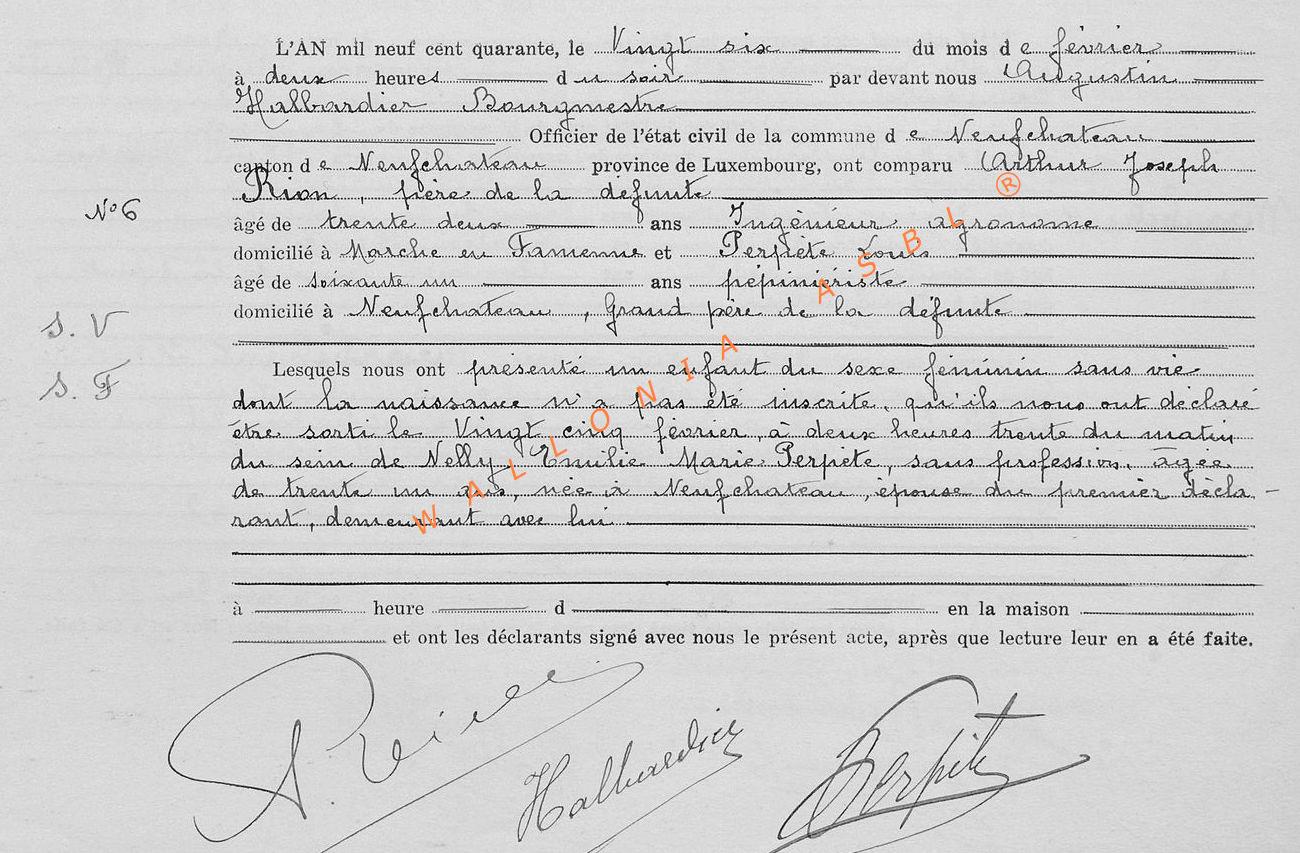 L'AN mil neuf cent quarante, le Vingt six du mois de février
à deux heures du soir par devant nous Augustin
Halbardier Bourgmestre
Officier de l'état civil de la commune de Neufchateau
canton de Neufchateau province de Luxembourg, ont comparu Arthur Joseph
Rion, père de la défunte
N° 6
âgé de trente deux ans Ingénieur agronome
domicilié à Marche en Famenne et Perpète Louis
âgé de soixante un ans pépiniériste
domicilié à Neufchateau, Grand père de la défunte
S. V
S. F
Lesquels nous ont présenté un enfant du sexe féminin sans vie
dont la naissance n'a pas été inscrite, qu'ils nous ont déclaré
être sorti le Vingt cinq février, à deux heures trente du matin
du sein de Nelly Emilie Marie Perpète, sans profession, âgée
de trente un ans, née à Neufchateau, épouse du premier décla-
rant, demeurant avec lui
à heure d en la maison
et ont les déclarants signé avec nous le présent acte, après que lecture leur en a été faite.
A. Rion
Halbardier
Perpète
WALLONIA ASBL ®